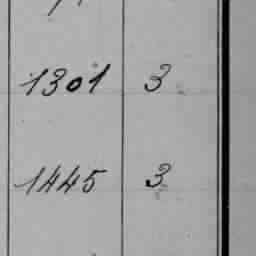 1301 3
1445 3